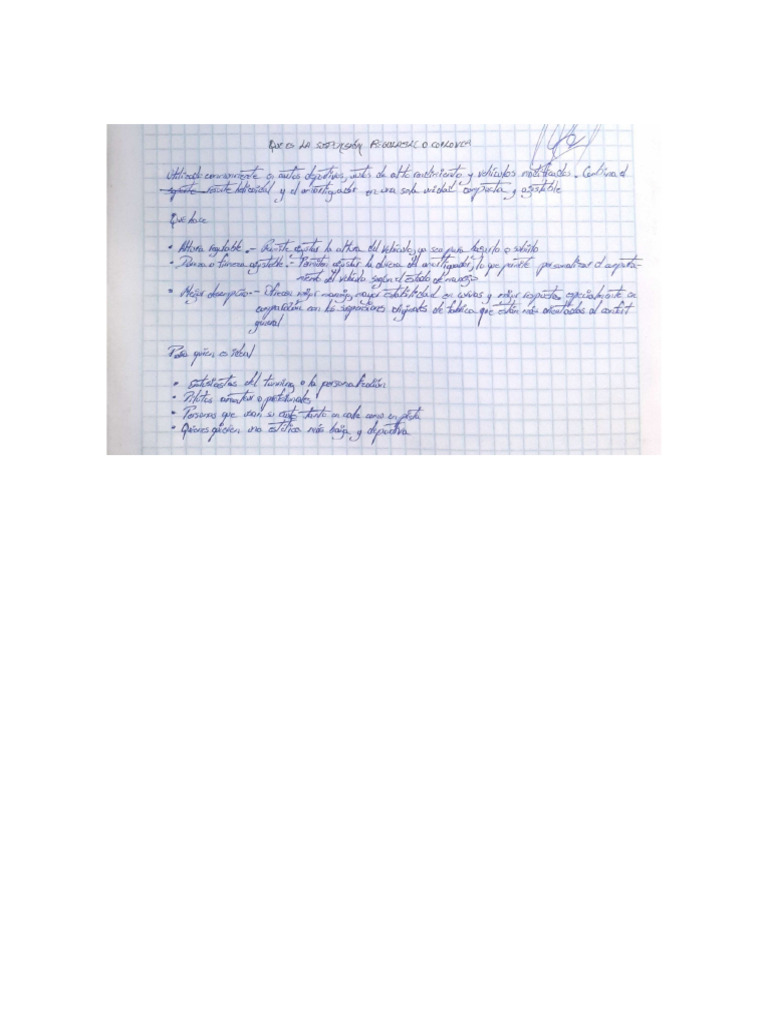 QUE ES LA SUSPENSIÓN REGULABLE O COILOVER
utilizado comunmente en autos deportivos, autos de alto rendimiento y vehículos modificados. Combina el
resorte helicoidal y el amortiguador en una sola unidad compacta y ajustable
Que hace
• Altura regulable.- Permite ajustar la altura del vehículo, ya sea para bajarlo o subirlo
• Dureza o firmeza ajustable.- Permiten ajustar la dureza del amortiguador, lo que permite personalizar el comporta-
miento del vehículo según el estado de manejo
• Mejor desempeño.- Ofrecen mejor manejo, mayor estabilidad en curvas y mejor respuesta especialmente en
comparación con las suspensiones originales de fabrica que están más orientadas al confort
general
Para quien es ideal
• entusiastas del tunning o la personalización
• Pilotos amateur o profesionales
• Personas que usan su auto tanto en calle como en pista
• Quienes quieren una estética más baja y deportiva